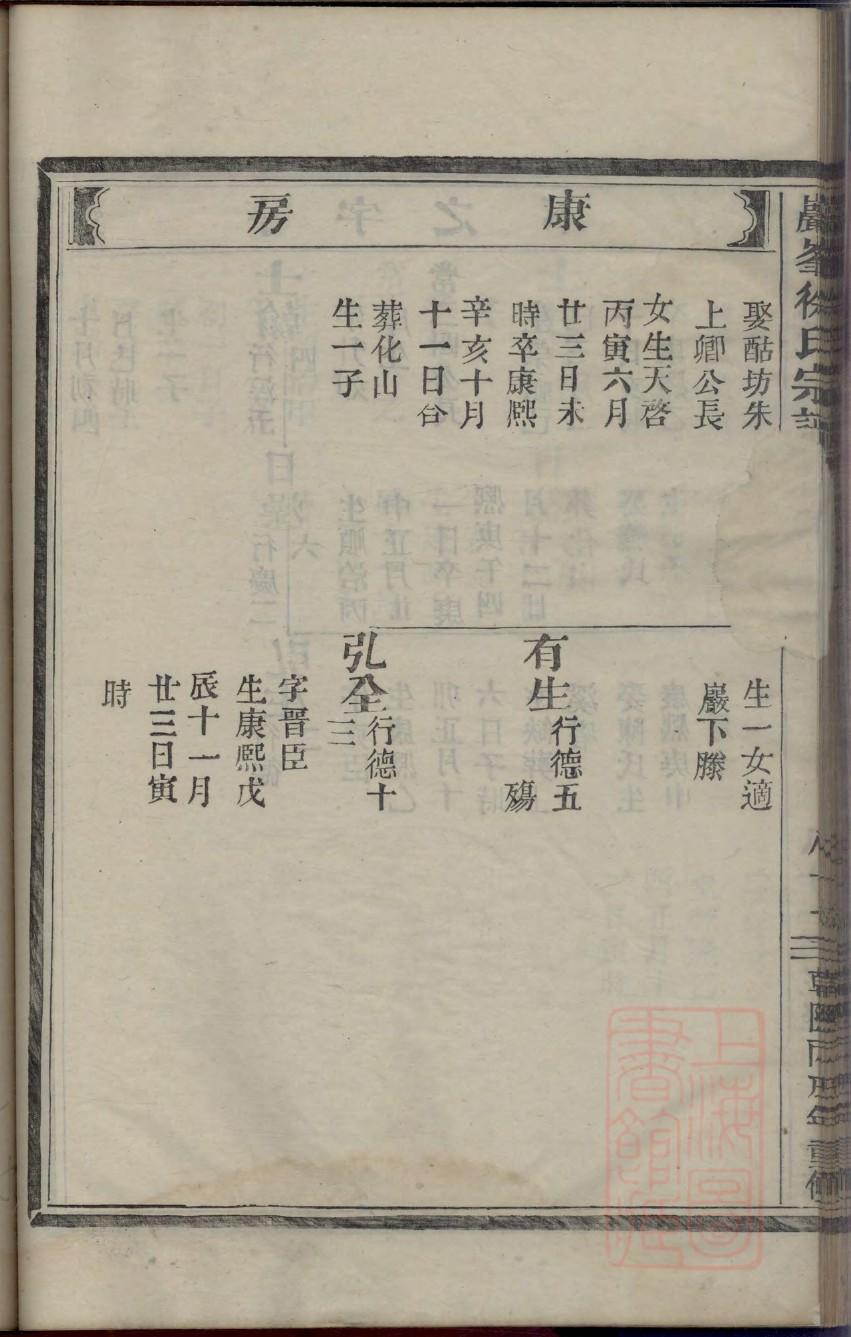 康房
娶酤坊朱
上卿公長
女生天啓
丙寅六月
廿三日未
時卒康熙
辛亥十月
十一日合
葬化山
生一子
生一女適
巖下滕
有生行德五
殤
弘全行德十
三
字晉臣
生康熙戊
辰十一月
廿三日寅
時
徐氏宗譜
上海圖
書館藏